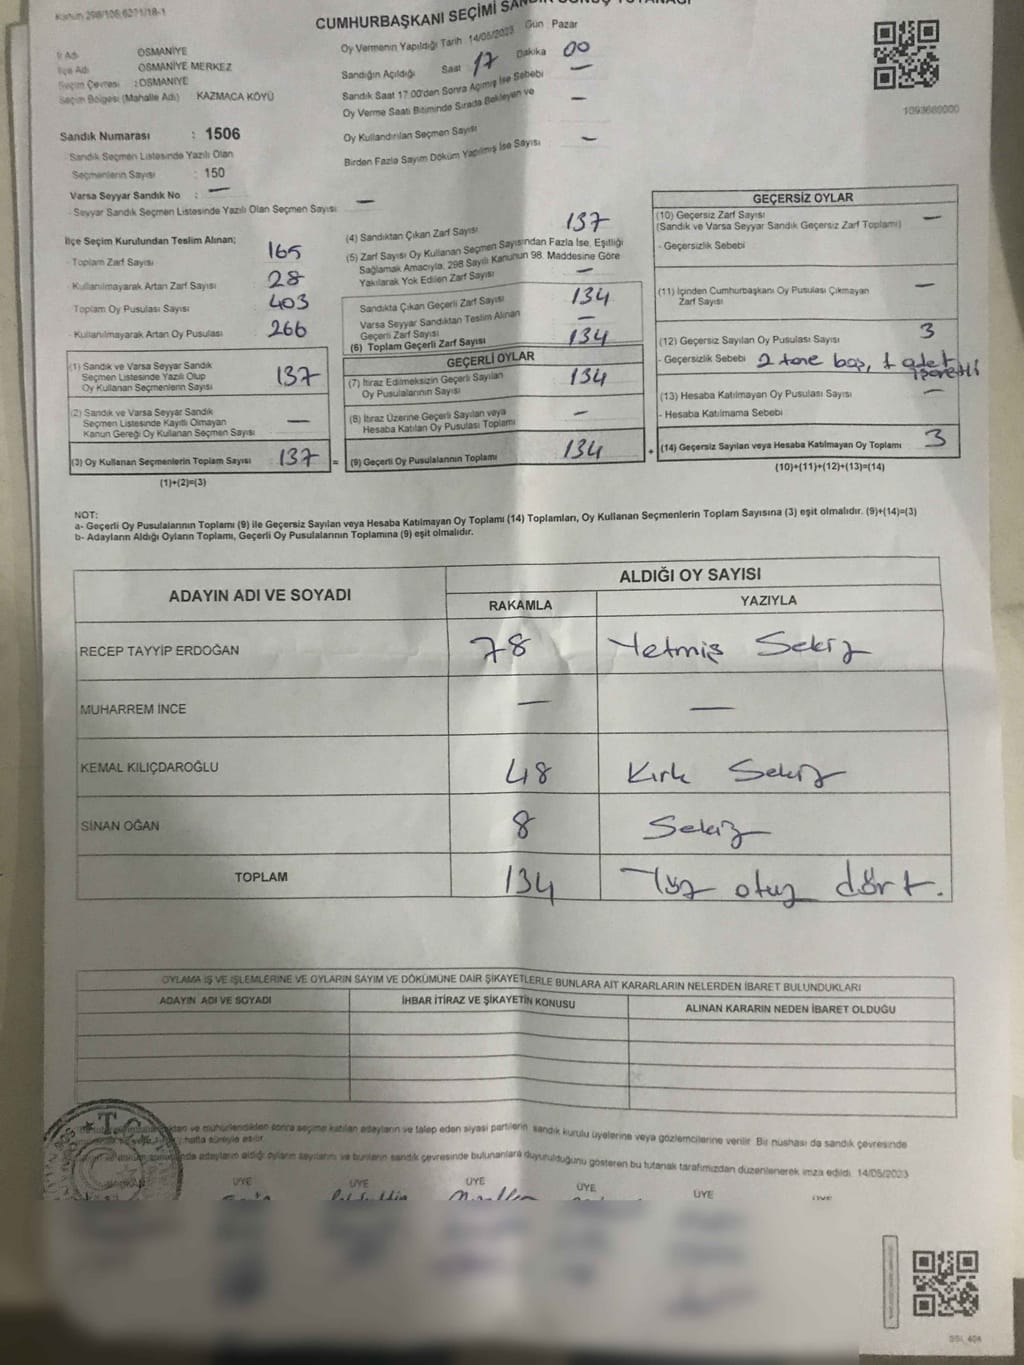 Kanun 298/106,6271/18-1
CUMHURBAŞKANI SEÇİMİ
İl Adı OSMANİYE
İlçe Adı OSMANİYE MERKEZ
Seçim Çevresi : OSMANİYE
Seçim Bölgesi (Mahalle Adı) KAZMACA KÖYÜ
Sandık Numarası : 1506
Sandık Seçmen Listesinde Yazılı Olan
Seçmenlerin Sayısı : 150
Varsa Seyyar Sandık No : —
- Seyyar Sandık Seçmen Listesinde Yazılı Olan Seçmen Sayısı —
Oy Vermenin Yapıldığı Tarih 14/05/2023 Gün Pazar
Sandığın Açıldığı Saat 17 Dakika 00
Sandık Saat 17:00'den Sonra Açımış İse Sebebi —
Oy Verme Saati Bitiminde Sırada Bekleyen ve
Oy Kullandırılan Seçmen Sayısı —
Birden Fazla Sayım Döküm Yapılmış İse Sayısı —
1093680000
İlçe Seçim Kurulundan Teslim Alınan;
- Toplam Zarf Sayısı 165
- Kullanılmayarak Artan Zarf Sayısı 28
- Toplam Oy Pusulası Sayısı 403
- Kullanılmayarak Artan Oy Pusulası 266
(1) Sandık ve Varsa Seyyar Sandık
Seçmen Listesinde Yazılı Olup
Oy Kullanan Seçmenlerin Sayısı 137
(2) Sandık ve Varsa Seyyar Sandık
Seçmen Listesinde Kayıtlı Olmayan
Kanun Gereği Oy Kullanan Seçmen Sayısı —
(3) Oy Kullanan Seçmenlerin Toplam Sayısı 137 =
(1)+(2)=(3)
(4) Sandıktan Çıkan Zarf Sayısı 137
(5) Zarf Sayısı Oy Kullanan Seçmen Sayısından Fazla İse, Eşitliği
Sağlamak Amacıyla, 298 Sayılı Kanunun 98. Maddesine Göre
Yakılarak Yok Edilen Zarf Sayısı —
Sandıkta Çıkan Geçerli Zarf Sayısı 134
Varsa Seyyar Sandıktan Teslim Alınan
Geçerli Zarf Sayısı —
(6) Toplam Geçerli Zarf Sayısı 134
GEÇERLİ OYLAR
(7) İtiraz Edilmeksizin Geçerli Sayılan
Oy Pusulalarının Sayısı 134
(8) İtiraz Üzerine Geçerli Sayılan veya
Hesaba Katılan Oy Pusulası Toplamı —
(9) Geçerli Oy Pusulalarının Toplamı 134 +
GEÇERSİZ OYLAR
(10) Geçersiz Zarf Sayısı —
(Sandık ve Varsa Seyyar Sandık Geçersiz Zarf Toplamı)
- Geçersizlik Sebebi
(11) İçinden Cumhurbaşkanı Oy Pusulası Çıkmayan —
Zarf Sayısı
(12) Geçersiz Sayılan Oy Pusulası Sayısı 3
- Geçersizlik Sebebi 2 tane boş, 1 adet
işaretli
(13) Hesaba Katılmayan Oy Pusulası Sayısı —
- Hesaba Katılmama Sebebi
(14) Geçersiz Sayılan veya Hesaba Katılmayan Oy Toplamı 3
(10)+(11)+(12)+(13)=(14)
NOT:
a- Geçerli Oy Pusulalarının Toplamı (9) ile Geçersiz Sayılan veya Hesaba Katılmayan Oy Toplamı (14) Toplamları, Oy Kullanan Seçmenlerin Toplam Sayısına (3) eşit olmalıdır. (9)+(14)=(3)
b- Adayların Aldığı Oyların Toplamı, Geçerli Oy Pusulalarının Toplamına (9) eşit olmalıdır.
ADAYIN ADI VE SOYADI ALDIĞI OY SAYISI
RAKAMLA YAZIYLA
RECEP TAYYİP ERDOĞAN 78 Yetmiş Sekiz
MUHARREM İNCE — —
KEMAL KILIÇDAROĞLU 48 Kırk Sekiz
SİNAN OĞAN 8 Sekiz
TOPLAM 134 Yüz otuz dört.
OYLAMA İŞ VE İŞLEMLERİNE VE OYLARIN SAYIM VE DÖKÜMÜNE DAİR ŞİKAYETLERLE BUNLARA AİT KARARLARIN NELERDEN İBARET BULUNDUKLARI
ADAYIN ADI VE SOYADI İHBAR İTİRAZ VE ŞİKAYETİN KONUSU ALINAN KARARIN NEDEN İBARET OLDUĞU
ve mühürlendikten sonra seçime katılan adayların ve talep eden siyasi partilerin sandık kurulu üyelerine veya gözlemcilerine verilir. Bir nüshası da sandık çevresinde
hafta süreyle asılır.
adayların aldığı oyların sayılarını ve bunların sandık çevresinde bulunanlara duyurulduğunu gösteren bu tutanak tarafımızdan düzenlenerek imza edildi. 14/05/2023
T.C.
ÜYE ÜYE ÜYE ÜYE ÜYE ÜYE